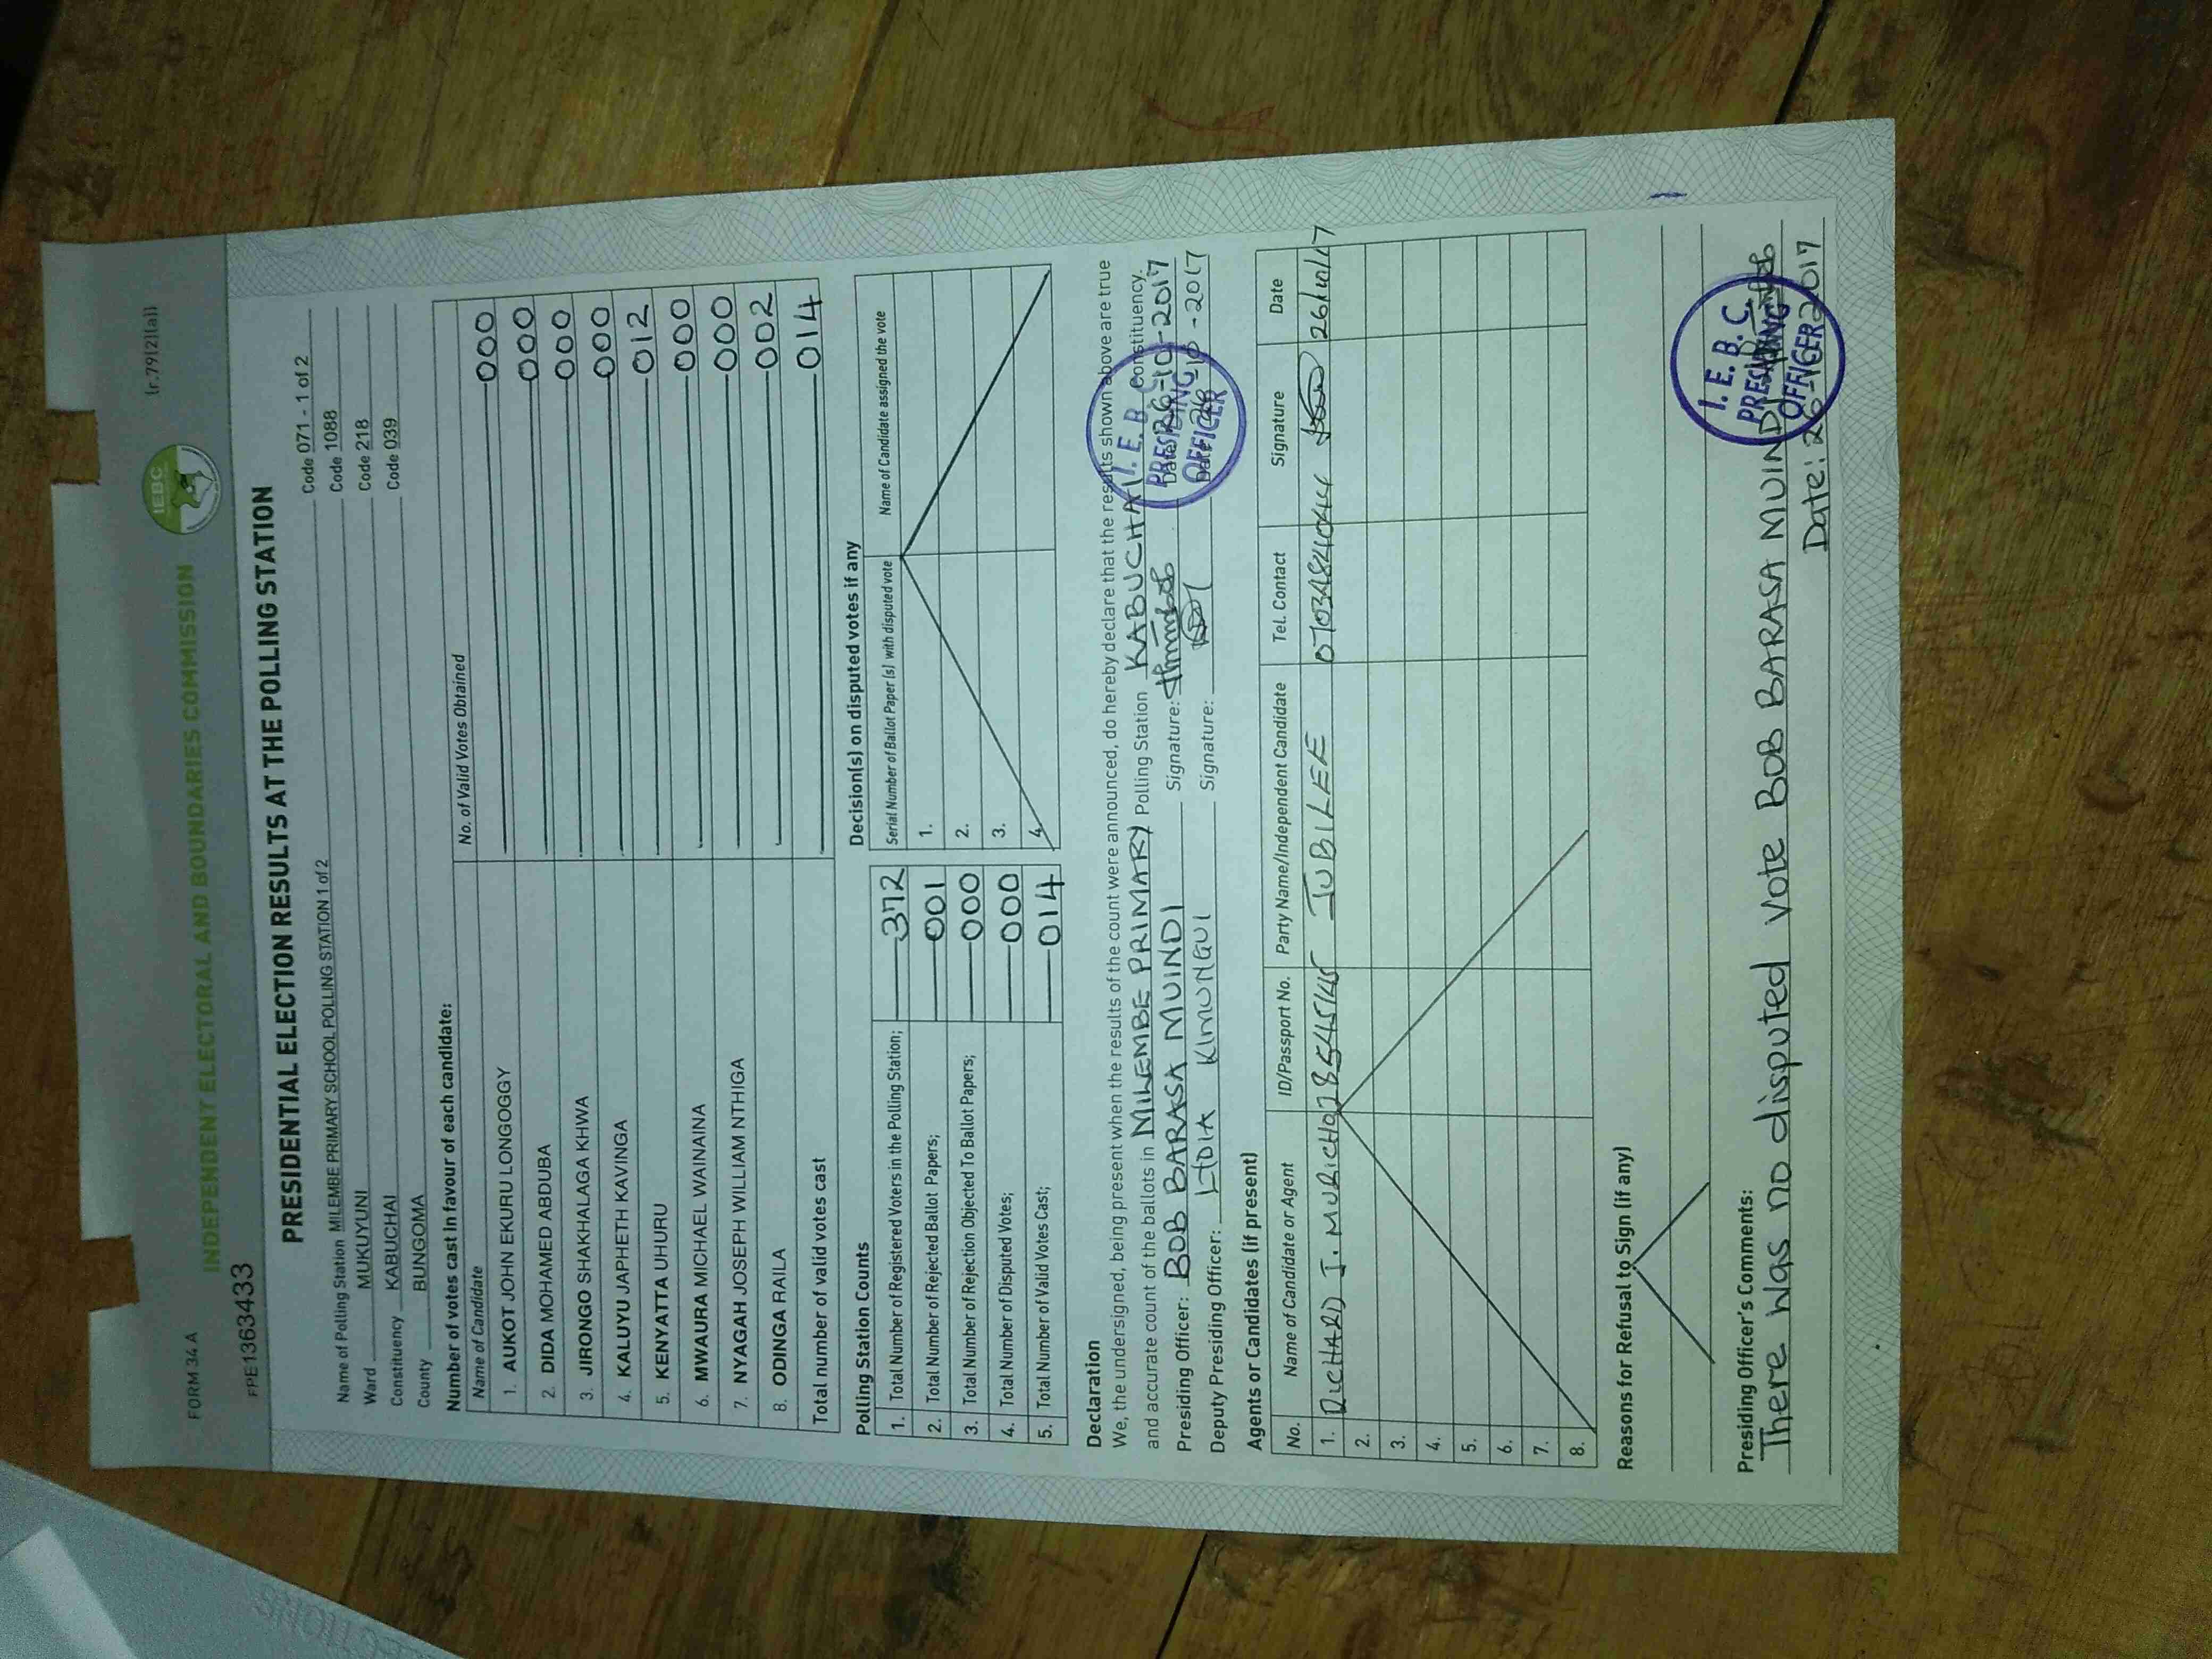 FORM 34 A
(r.79(2)(a))
IEBC
INDEPENDENT ELECTORAL AND BOUNDARIES COMMISSION
FPE1363433
PRESIDENTIAL ELECTION RESULTS AT THE POLLING STATION
Name of Polling Station MILEMBE PRIMARY SCHOOL POLLING STATION 1 of 2 Code 071 - 1 of 2
Ward MUKUYUNI Code 1088
Constituency KABUCHAI Code 218
County BUNGOMA Code 039
Number of votes cast in favour of each candidate:
Name of Candidate No. of Valid Votes Obtained
1. AUKOT JOHN EKURU LONGOGGY 000
2. DIDA MOHAMED ABDUBA 000
3. JIRONGO SHAKHALAGA KHWA 000
4. KALUYU JAPHETH KAVINGA 000
5. KENYATTA UHURU 012
6. MWAURA MICHAEL WAINAINA 000
7. NYAGAH JOSEPH WILLIAM NTHIGA 000
8. ODINGA RAILA 002
Total number of valid votes cast 014
Polling Station Counts
1. Total Number of Registered Voters in the Polling Station; 372
2. Total Number of Rejected Ballot Papers; 001
3. Total Number of Rejection Objected To Ballot Papers; 000
4. Total Number of Disputed Votes; 000
5. Total Number of Valid Votes Cast; 014
Decision(s) on disputed votes if any
Serial Number of Ballot Paper (s) with disputed vote Name of Candidate assigned the vote
1.
2.
3.
4.
Declaration
We, the undersigned, being present when the results of the count were announced, do hereby declare that the results shown above are true
and accurate count of the ballots in MILEMBE PRIMARY Polling Station KABUCHAI Constituency.
Presiding Officer: BOB BARASA MUINDI Signature: Date: 26-10-2017
Deputy Presiding Officer: LYDIA KIMUNGUI Signature: Date: 26-10-2017
I. E. B. C.
PRESIDING
OFFICER
Agents or Candidates (if present)
No. Name of Candidate or Agent ID/Passport No. Party Name/Independent Candidate Tel. Contact Signature Date
1. RICHARD I. MURICHO JUBILEE 26/10/17
2.
3.
4.
5.
6.
7.
8.
Reasons for Refusal to Sign (if any)
Presiding Officer's Comments:
There was no disputed vote BOB BARASA MUINDI
Date: 26-10-2017
I. E. B. C.
PRESIDING
OFFICER